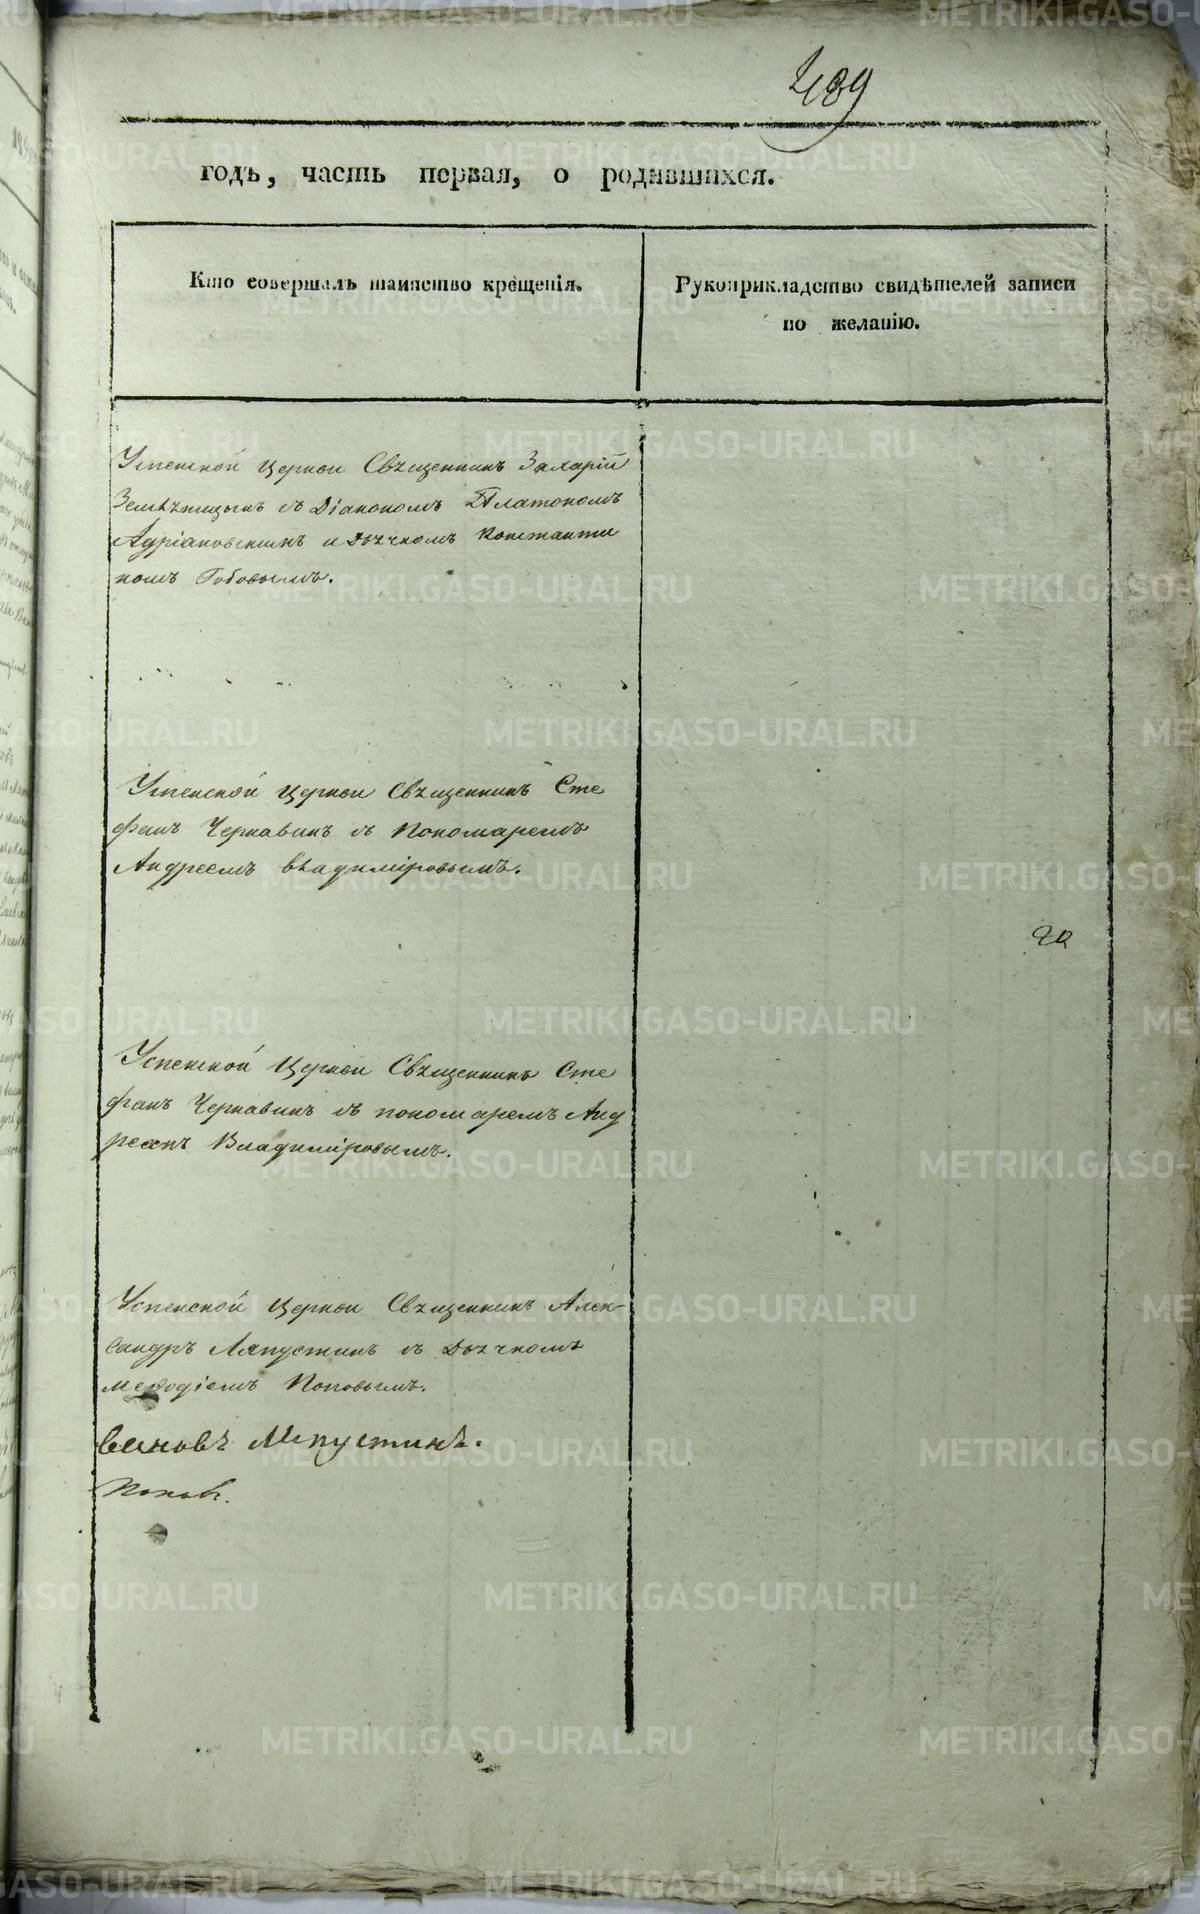 489
годъ, часть первая, о родившихся.
Кто совершалъ таинство крещенія.
Рукоприкладство свидѣтелей записи
по желанію.
Успенской Церкви Священникъ Захарій
съ Діакономъ Платономъ
Адріановскимъ и Дьячкомъ Константи
номъ
Успенской Церкви Священникъ Сте
фанъ Чернавинъ съ Пономаремъ
Андреемъ Владиміровымъ.
Успенской Церкви Священникъ Сте
фанъ Чернавинъ съ пономаремъ Анд
реемъ Владиміровымъ.
Успенской Церкви Священникъ Алек-
сандръ Ляпустинъ съ Дьячкомъ
Меѳодіемъ Поповымъ.
Ляпустинъ.
Поповъ.
METRIKI.GASO-URAL.RU